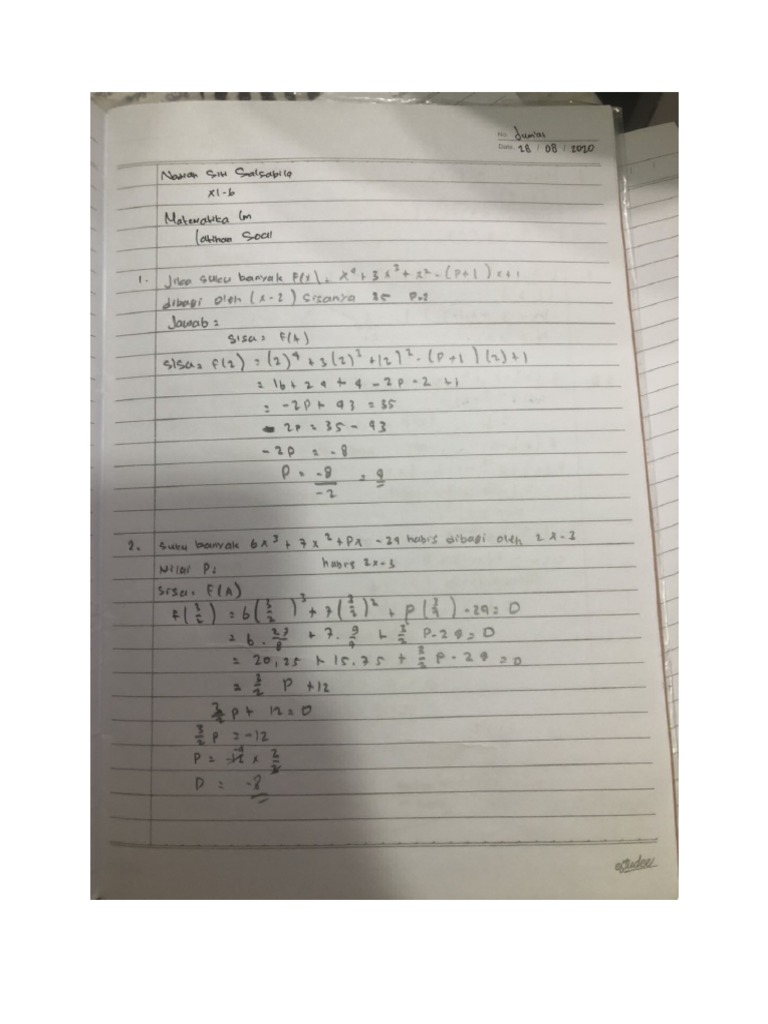 No. Jumat
Date. 28 / 08 / 2020
Nawah Siti Salsabila
XI-6
Matematika lm
latihan Soal
1. Jika suku banyak F(x) = x⁴ + 3x³ + x² - (p+1) x+1
dibagi oleh (x-2) sisanya 35 P=?
Jawab =
sisa = F(A)
sisa = F(2) = (2)⁴ + 3(2)³ + (2)² - (P+1) (2) + 1
= 16 + 24 + 4 - 2P - 2 + 1
= -2P + 43 = 35
- 2P = 35 - 43
- 2P = -8
P = -8/-2 = 4
2. Suku banyak 6x³ + 7x² + Px - 24 habis dibagi oleh 2x-3
Nilai P = habis 2x-3
Sisa = F(A)
F(3/2) = 6(3/2)³ + 7(3/2)² + P(3/2) - 24 = 0
= 6 . 27/8 + 7 . 9/4 + 3/2 P - 24 = 0
= 20,25 + 15,75 + 3/2 P - 24 = 0
= 3/2 P + 12
3/2 P + 12 = 0
3/2 P = -12
P = -12 x 2/3
P = -8